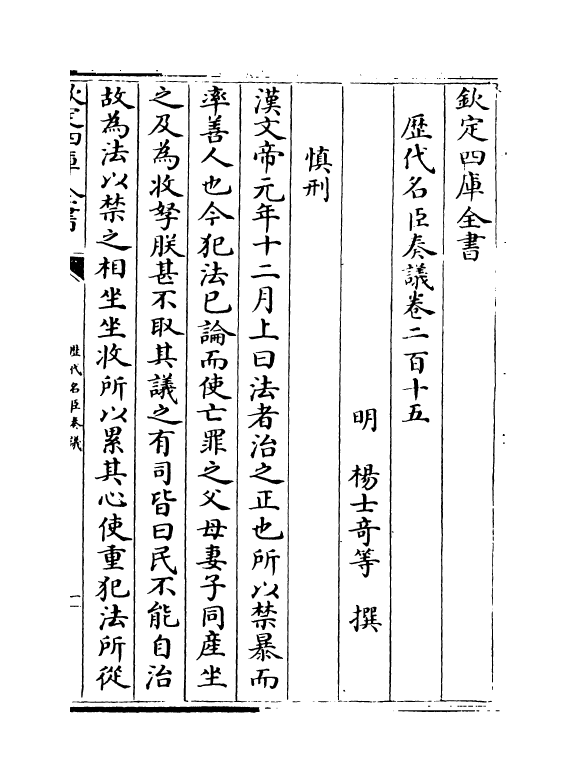 欽定四庫全書
歴代名臣奏議卷二百十五
明　楊士奇等　撰
慎刑
漢文帝元年十二月上曰法者治之正也所以禁暴而
率善人也今犯法已論而使亡罪之父母妻子同産坐
之及為收孥朕甚不取其議之有司皆曰民不能自治
故為法以禁之相坐坐收所以累其心使重犯法所從
欽定四庫全書
歴代名臣奏議
一